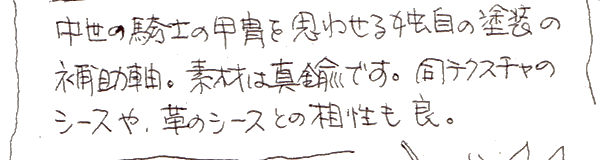 中世の騎士の甲冑を思わせる独自の塗装の
補助軸。素材は真鍮です。同テクスチャの
シースや、革のシースとの相性も良。